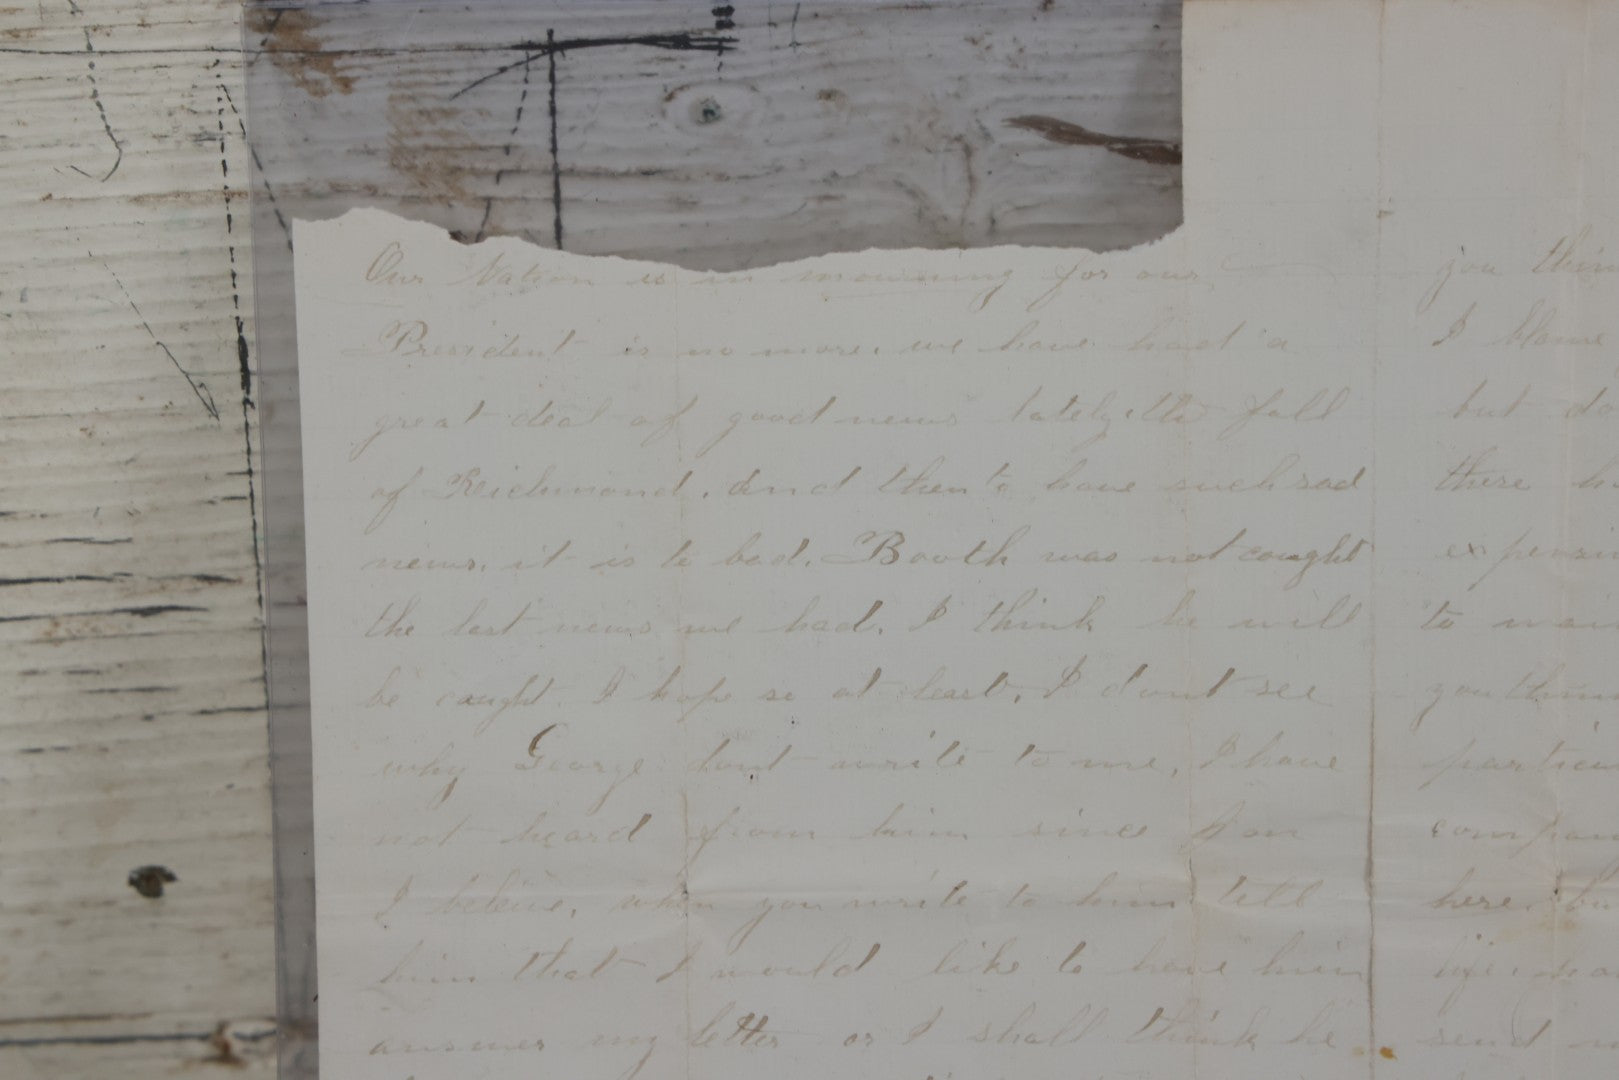 Our Nation is in mourning for our
President is no more. we have had a
great deal of good news lately, the fall
of Reichmond. And then to have such sad
news. it is to bad. Booth was not caught
the last news we had. I think he will
be caught. I hope so at least. I dont see
why George dont write to me, I have
not heard from him since Jan
I beleive. when you write to him tell
him that I would like to have him
answer my letter or I shall think he
you thin
I blame
but do
there
to
you thin
here. bu
life.
send